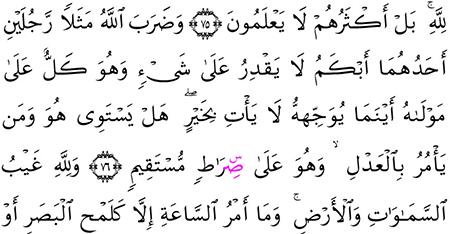 لِلَّهِۚ بَلۡ أَكۡثَرُهُمۡ لَا يَعۡلَمُونَ ٧٥ وَضَرَبَ ٱللَّهُ مَثَلٗا رَّجُلَيۡنِ
أَحَدُهُمَآ أَبۡكَمُ لَا يَقۡدِرُ عَلَىٰ شَيۡءٖ وَهُوَ كَلٌّ عَلَىٰ
مَوۡلَىٰهُ أَيۡنَمَا يُوَجِّههُّ لَا يَأۡتِ بِخَيۡرٍ ۖ هَلۡ يَسۡتَوِي هُوَ وَمَن
يَأۡمُرُ بِٱلۡعَدۡلِ ۙ وَهُوَ عَلَىٰ صِرَٰطٖ مُّسۡتَقِيمٖ ٧٦ وَلِلَّهِ غَيۡبُ
ٱلسَّمَٰوَٰتِ وَٱلۡأَرۡضِۚ وَمَآ أَمۡرُ ٱلسَّاعَةِ إِلَّا كَلَمۡحِ ٱلۡبَصَرِ أَوۡ